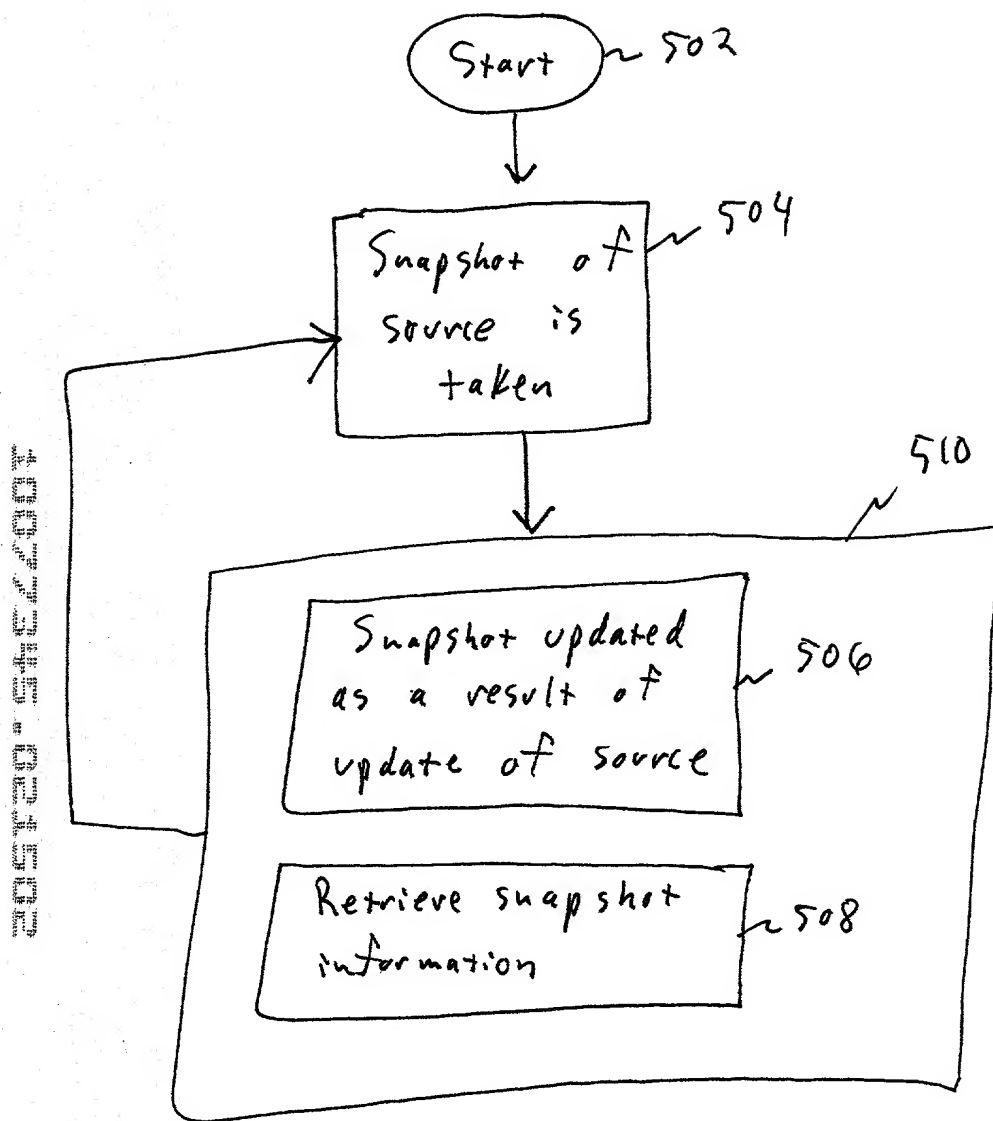 Start
502
Snapshot of
source is
taken
504
510
Snapshot updated
as a result of
update of source
506
Retrieve snapshot
information
508
10077345.021502